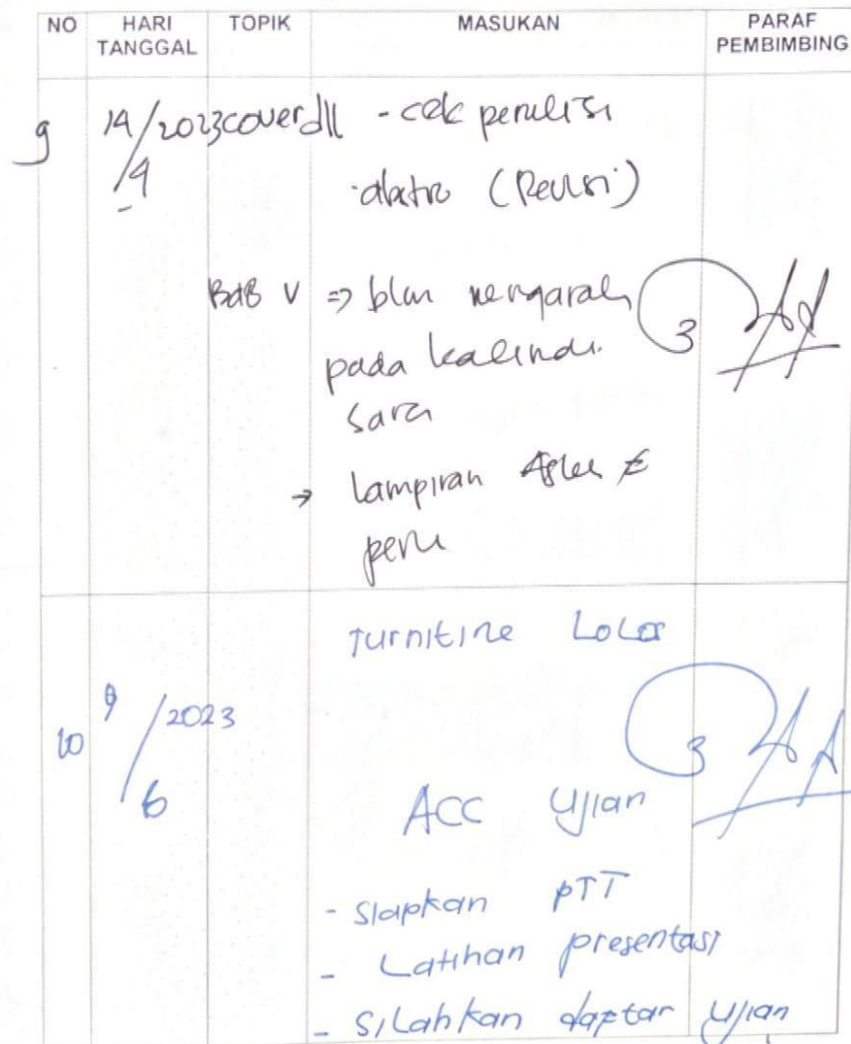 NO HARI TANGGAL TOPIK MASUKAN PARAF PEMBIMBING
9 14/4 2023 cover dll - cek penulisi
(Revisi)
BAB V => blm mengarah
pada
saran
→ lampiran
perlu
Turnitine Lolos
10 9/6 2023
ACC Ujian
- Siapkan PTT
- Latihan presentasi
- Silahkan daptar Ujian